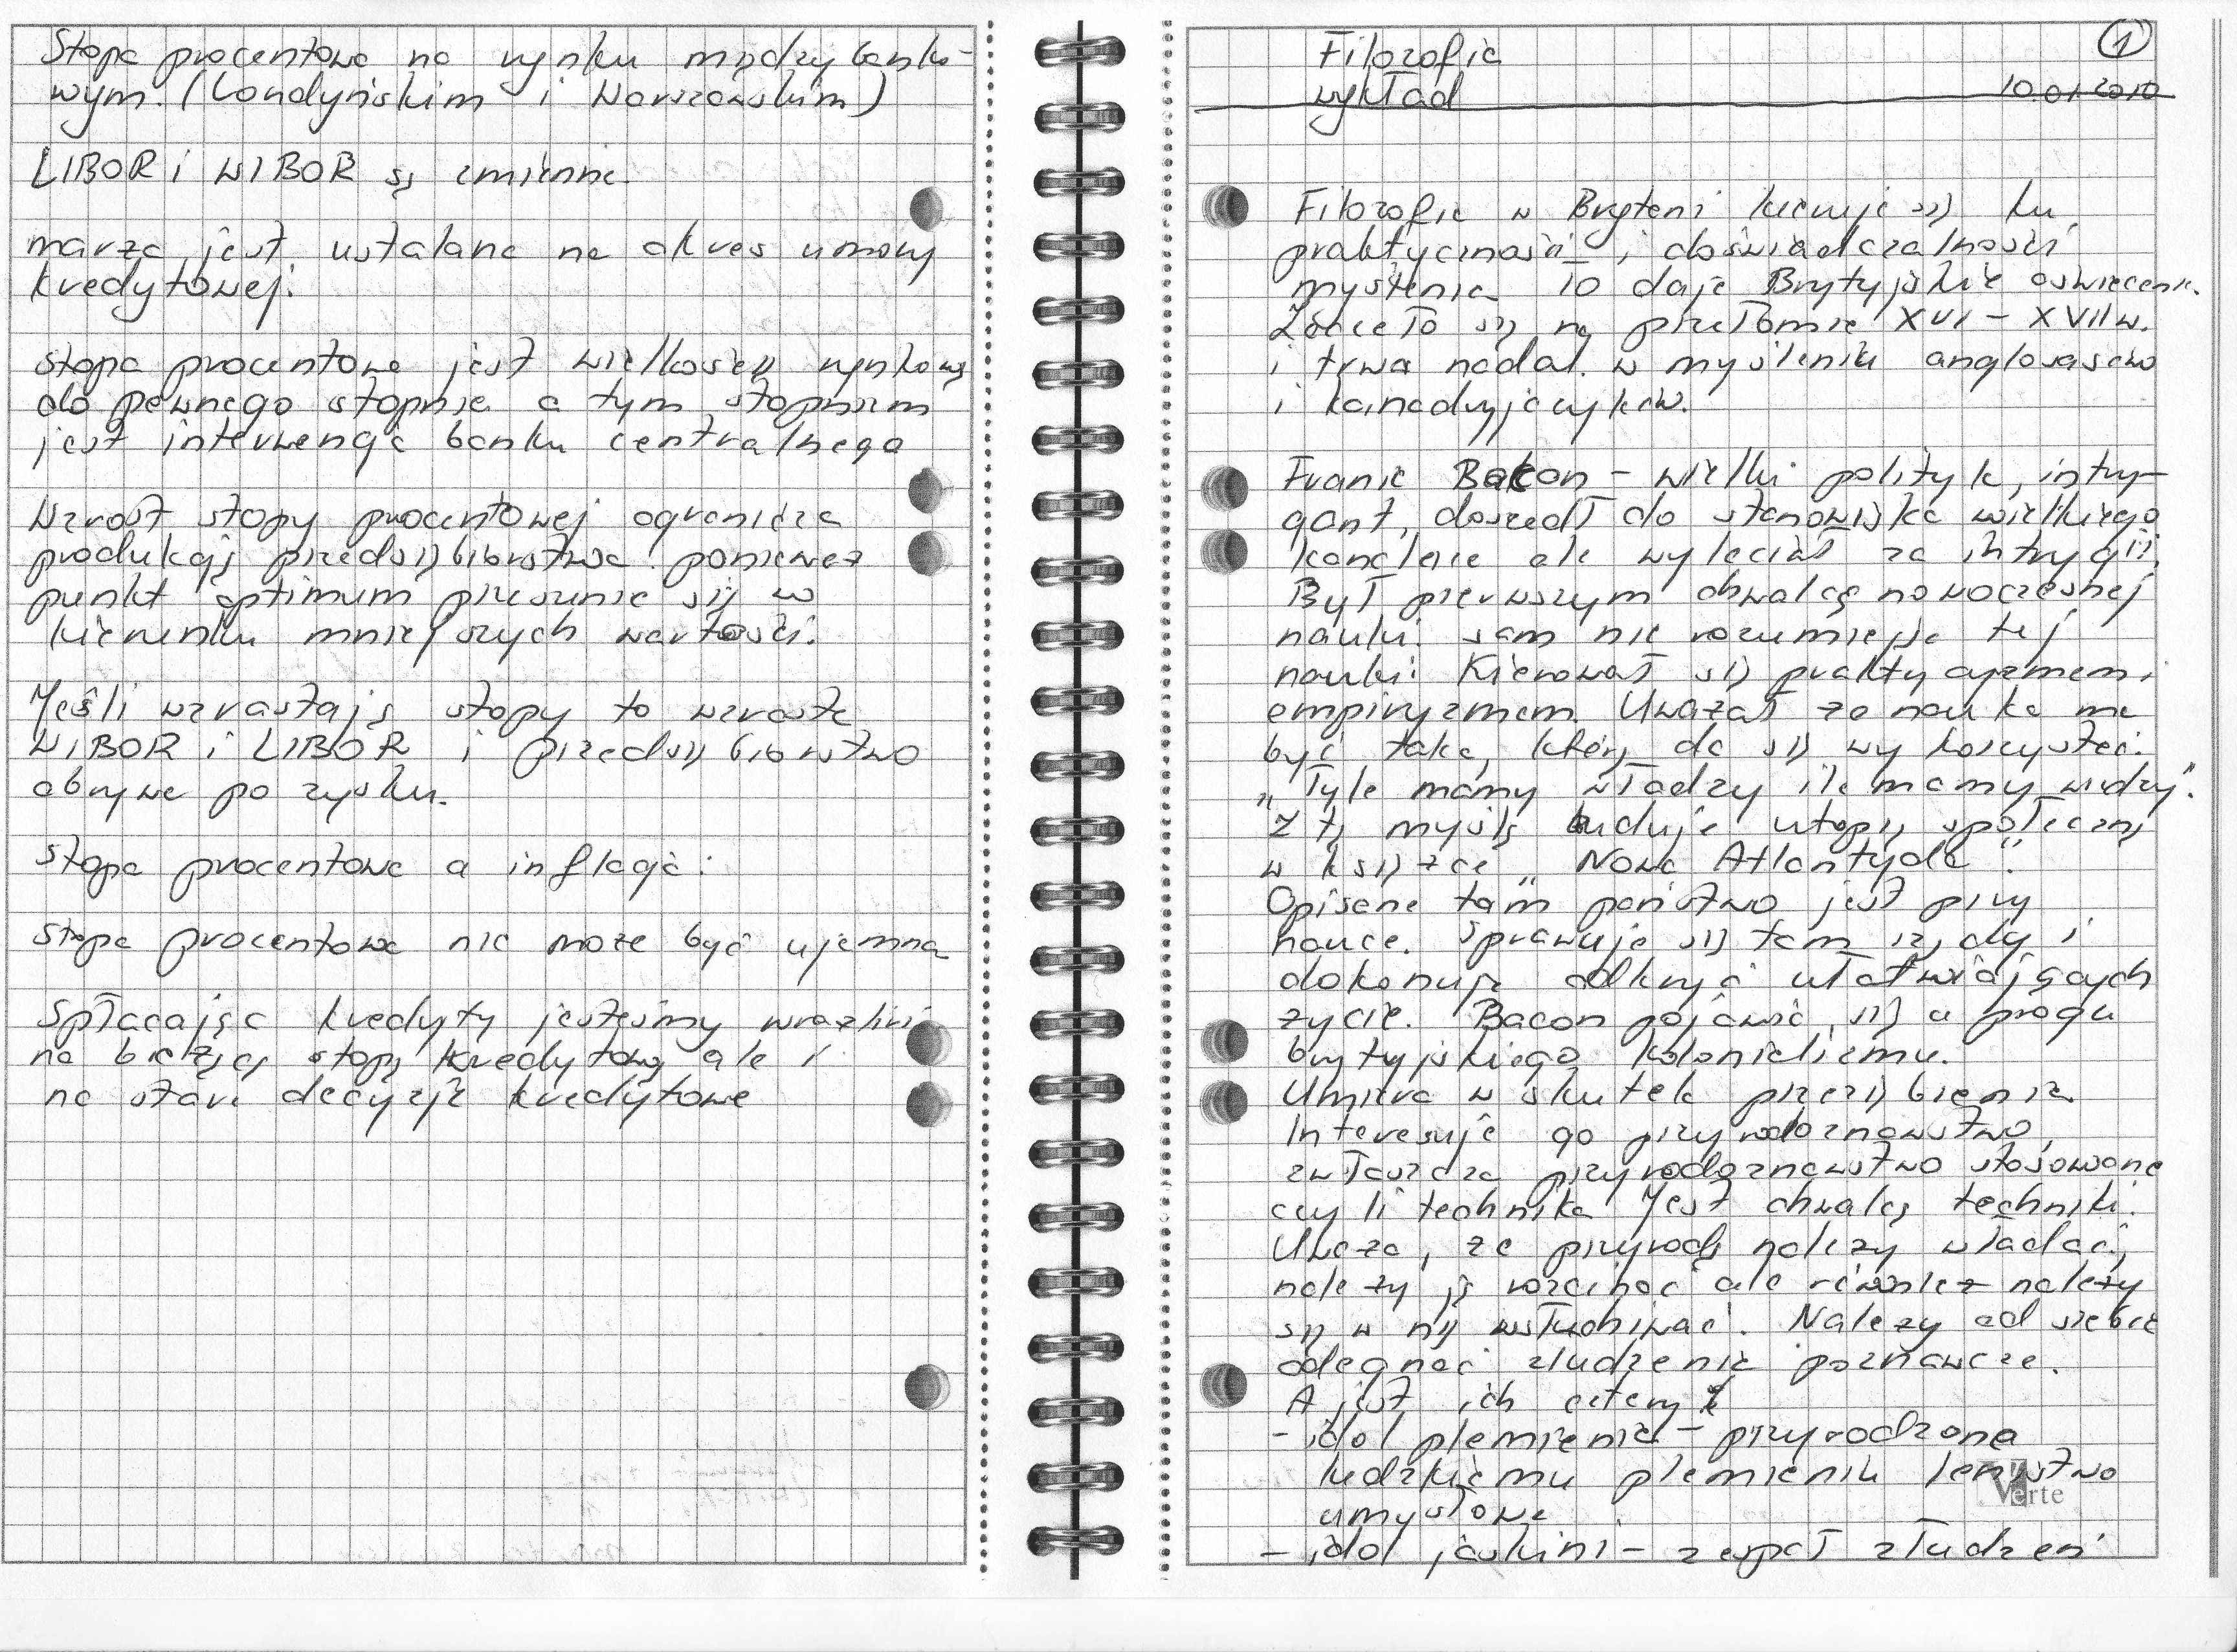 Stopa procentowa na rynku międzybanko-
wym. (Londyńskim i Warszawskim)
LIBOR i WIBOR są zmienne.
marża jest ustalana na okres umowy
kredytowej.
stopa procentowa jest wielkością rynkową
do pewnego stopnia a tym stopniem
jest interwencja banku centralnego
Wzrost stopy procentowej ogranicza
produkcję przedsiębiorstwa ponieważ
punkt optimum przesunie się w
kierunku mniejszych wartości.
Jeśli wzrastają stopy to wzrasta
WIBOR i LIBOR i przedsiębiorstwo
obrywa po zysku.
stopa procentowa a inflacja:
stopa procentowa nie może być ujemna
Spłacając kredyty jesteśmy wrażliwi
na bieżącą stopę kredytową ale i
na stare decyzje kredytowe
1
Filozofia
wykład 10.01.2010
Filozofia w Brytani kieruje się ku
praktyczności i doświadczalności
myślenia To daje Brytyjskie oświecenie.
Zaczęło się na przełomie XVI - XVII w.
i trwa nadal w myśleniu anglosasów
i kanadyjczyków.
Franic Bacon - wielki polityk, intry-
gant, doszedł do stanowiska wielkiego
kanclerza ale wyleciał za intrygi.
Był pierwszym chwalcą nowoczesnej
nauki. sam nie rozumiejąc tej
nauki. Kierował się praktycyzmem i
empiryzmem. Uważał że nauka ma
być taka, którą da się wykorzystać.
„Tyle mamy władzy ile mamy wiedzy".
Z tą myślą buduje utopię społeczną
w książce „Nowa Atlantyda".
Opisane tam państwo jest przy
nauce. Sprawuje się tam rządy i
dokonuje odkryć ułatwiających
życie. Bacon pojawia się u progu
brytyjskiego kolonializmu.
Umiera w skutek przeziębienia.
Interesuje go przyrodoznawstwo,
zwłaszcza przyrodoznawstwo stosowane
czyli technika Jest chwalcą techniki.
Uważa, że przyrodą należy władać,
należy ją rozcinać ale również należy
się w nią wsłuchiwać. Należy od siebie
odegnać złudzenia poznawcze.
A jest ich cztery
- idol plemienia - przyrodzone
ludzkiemu plemieniu lenistwo
umysłowe
- idol jaskini - zespół złudzeń
Verte